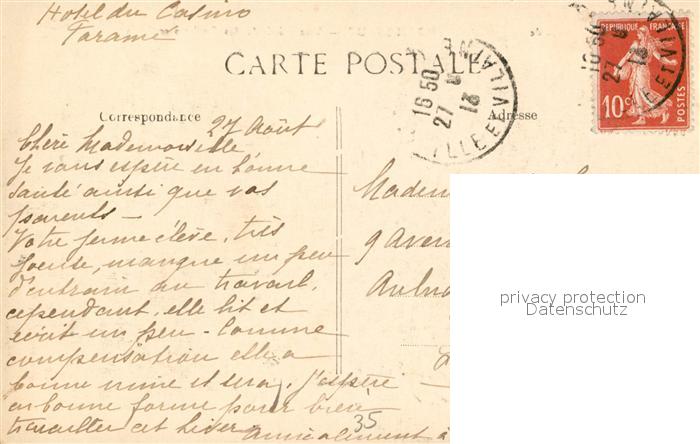 Hotel du Casino
Paramé
CARTE POSTALE
Correspondance
Adresse
27 Août
Chère Mademoiselle
Je vous espère en bonne
santé ainsi que vos
parents —
Votre jeune élève, très
joueuse, manque un peu
d'entrain au travail,
cependant, elle lit et
écrit un peu - Comme
compensation elle a
bonne mine et sera, j'espère
en bonne forme pour bien
travailler cet hiver
amicalement à
35
Madem
9 Aven
Aulna
16 50
27
13
ILLE ET VILAINE
REPUBLIQUE FRANÇAISE
10c
POSTES
16 50
27
13
privacy protection
Datenschutz